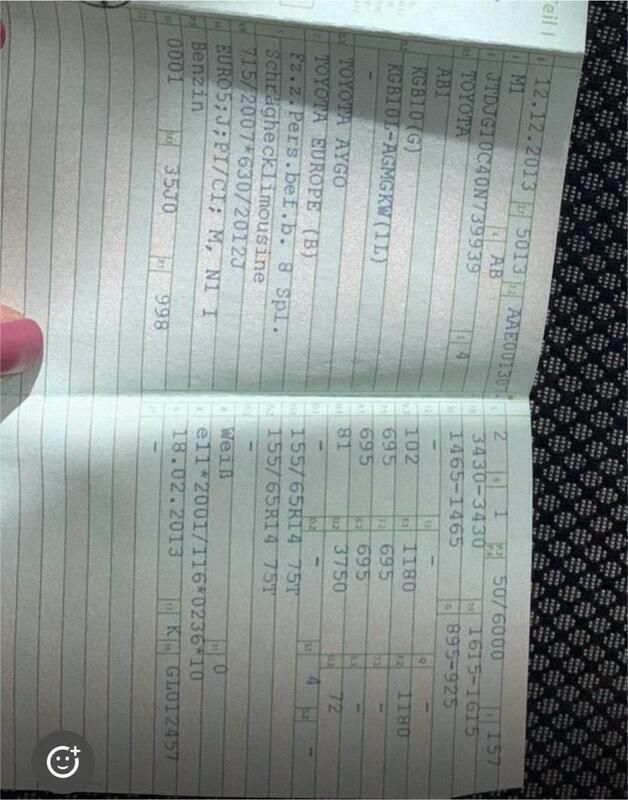 eil I
12.12.2013 5013 AAE00130
M1 AB
JTDJG10C40N739939 4
TOYOTA
AB1
KGB10(G)
KGB10L-AGMGKW(1L)
-
TOYOTA AYGO
TOYOTA EUROPE (B)
Fz.z.Pers.bef.b. 8 Spl.
Schräghecklimousine
715/2007*630/2012J
EURO5;J;PI/CI; M, N1 I
Benzin
0001 35J0 998
2 1 50/6000 157
3430-3430 1615-1615
1465-1465 895-925
- - -
102 1180 1180
695 695 -
695 695 -
81 3750 72
- - 4 -
155/65R14 75T
155/65R14 75T
-
Weiß 0
e11*2001/116*0236*10
18.02.2013 K GL012457
-